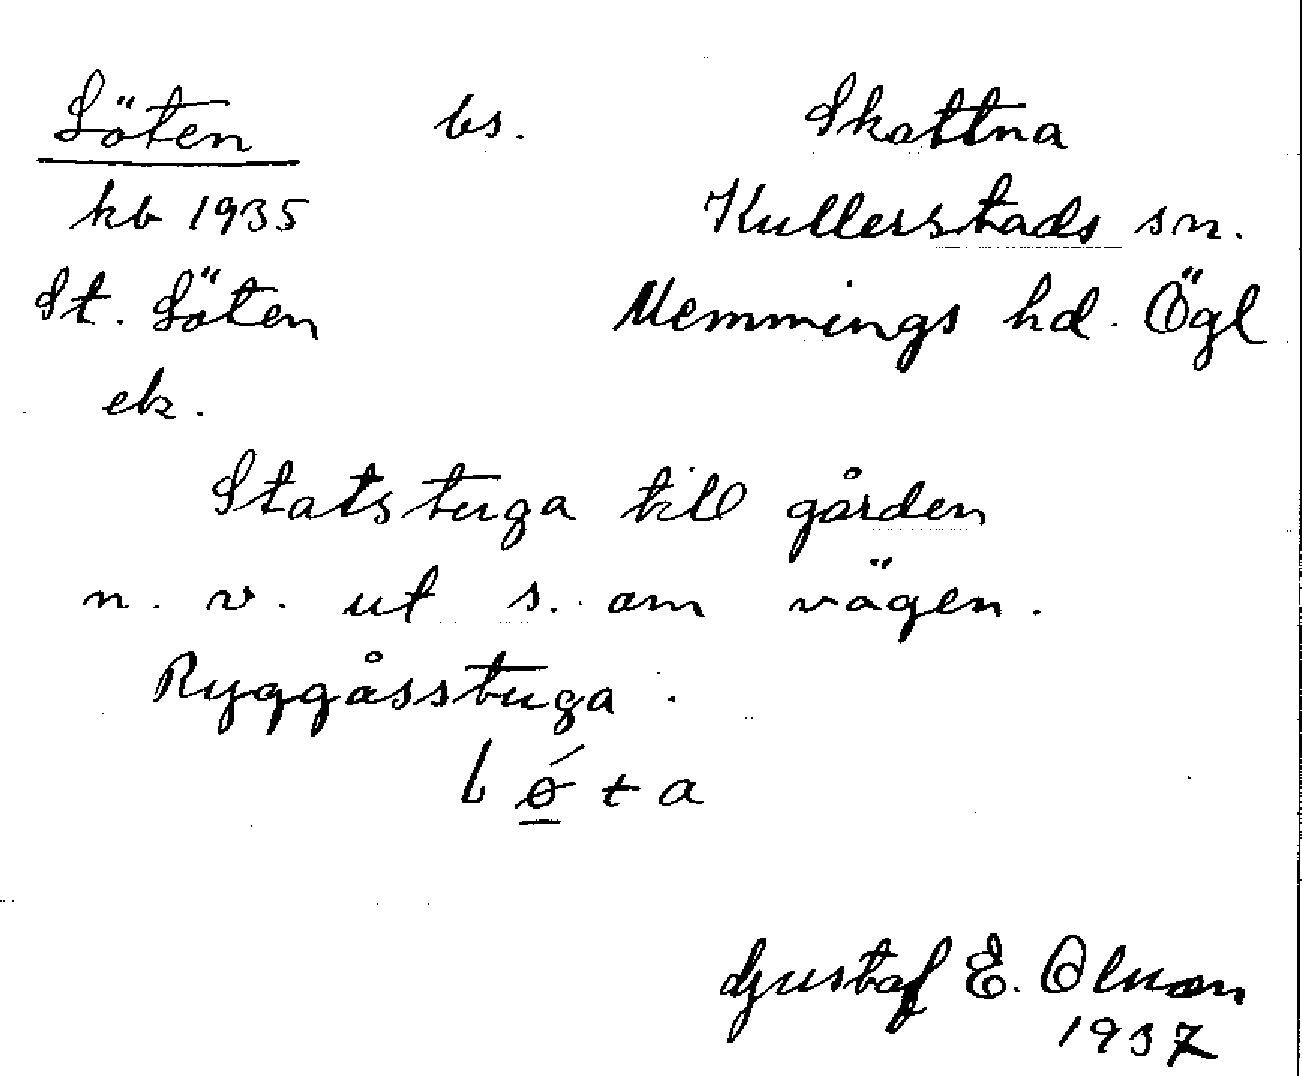 Löten bs. Skattna
kb 1935 Kullerstads sn.
St. Löten Memmings hd. Ögl
ek.
Statstuga till gården
n. v. ut s. om vägen.
Ryggåsstuga.
l ǿ t a
Gustaf E. Olsson
1937